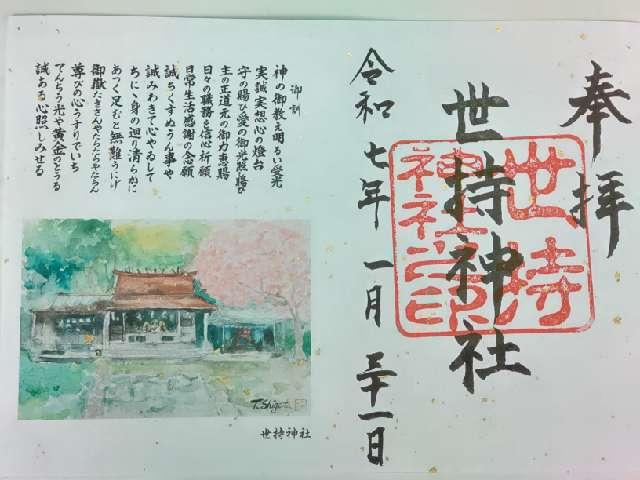 奉拝
世持神社
世持
神社之印
令和七年一月三十一日
御訓
神の御教え明るい愛光
実誠実想心の燈台
守の賜ひ愛の御光照格ひ
主の正道元の御力恵賜
日々の職務を信心祈願
日常生活感謝の念願
誠ちくすぬうん事や
誠みわきて心やゐして
ちに、身の廻り清らかに
あつく足むと無難うにげ
尊びの心うすりでいち
でんちう光や黄金のとうる
誠ある心照しみせる
T.Shigeta
世持神社